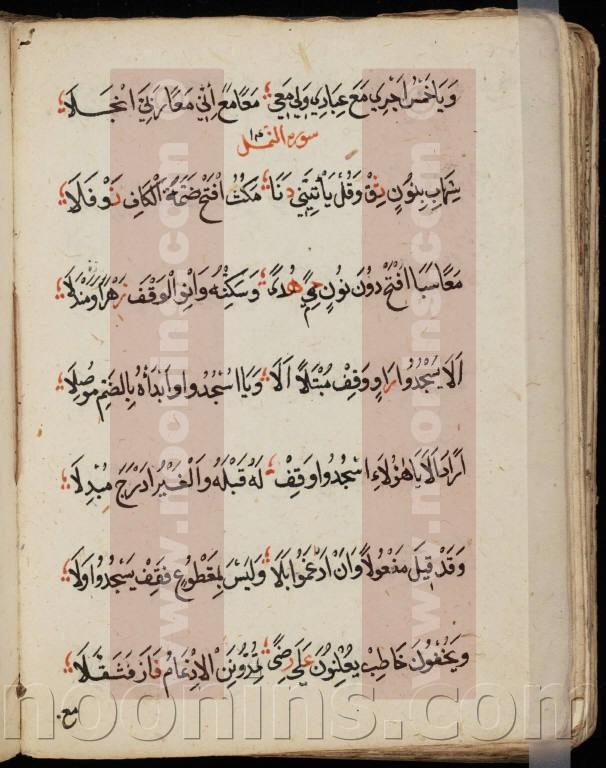 وَيَاخَمْسُ اَجْرِي مَعْ عِبَادِي وَلِي مَعِي ؛ مَعًا مَعْ اَبِي مَعَا رَبِّيَ انْجَلَا ؛
سورة النمل
شِهَابٍ بِنُونٍ ثِقْ وَقُلْ يَأْتِيَنَّنِي دَنَا ؛ مَكُثَ افْتَحْ ضَمَّةَ الْكَافِ نَوْفَلَا ؛
مَعًا سَبَأَ افْتَحْ دُونَ نُونٍ حِمًى هُدًى ؛ وَسَكِّنْهُ وَانْوِ الْوَقْفَ زُهْرًا وَمَنْدَلَا ؛
اَلَا يَسْجُدُوا رَاوٍ وَقِفْ مُبْتَلًا اَلَا ؛ وَيَا اسْجُدُوا وَابْدَأْهُ بِالضَّمِّ مُوصِلَا ؛
اَرَادَ اَلَا يَا هٰؤُلَاءِ اسْجُدُوا وَقِفْ ؛ لَهُ قَبْلَهُ وَالْغَيْرُ ادْرَجَ مُبْدِلَا ؛
وَقَدْ قِيلَ مَفْعُولًا وَاَنْ اَدْغَمُوا بِلَا ؛ وَلَيْسَ بِمَقْطُوعٍ فَقِفْ يَسْجُدُوا وَلَا ؛
وَيُخْفُونَ خَاطِبْ يُعْلِنُونَ عَلَى رِضًى ؛ تُمِدُّونَنِ الْاِدْغَامُ فَازَ فَثَقَّلَا ؛
مع
www.noonins.com
www.noonins.com
noonins.com